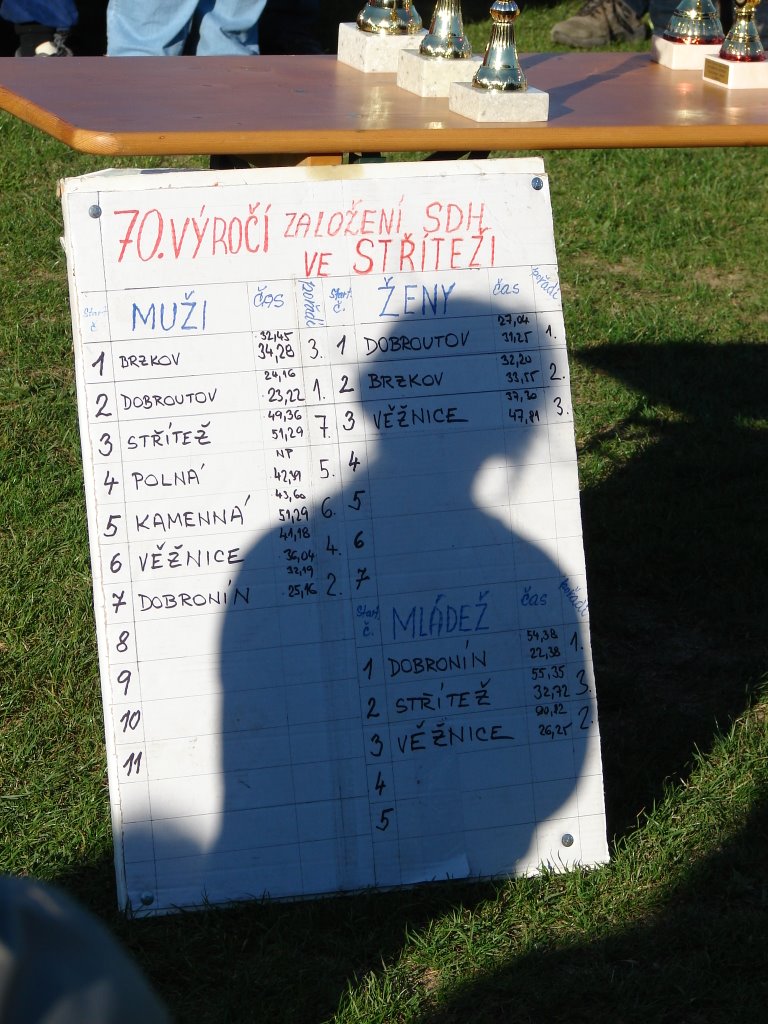 70. VÝROČÍ ZALOŽENÍ SDH
VE STŘÍTEŽI
Start. č. MUŽI ČAS pořadí
32,45
1 BRZKOV 34,28 3.
24,16
2 DOBROUTOV 23,22 1.
49,36
3 STŘÍTEŽ 51,29 7.
NP
4 POLNÁ 42,99 5.
43,60
5 KAMENNÁ 51,29 6.
41,18
6 VĚŽNICE 36,04 4.
32,19
7 DOBRONÍN 25,16 2.
8
9
10
11
Start. č. ŽENY čas pořadí
27,04
1 DOBROUTOV 31,25 1.
32,20
2 BRZKOV 33,55 2.
37,30
3 VĚŽNICE 47,81 3.
4
5
6
7
Start. č. MLÁDEŽ čas pořadí
54,38
1 DOBRONÍN 22,38 1.
55,35
2 STŘÍTEŽ 32,72 3.
90,82
3 VĚŽNICE 26,25 2.
4
5